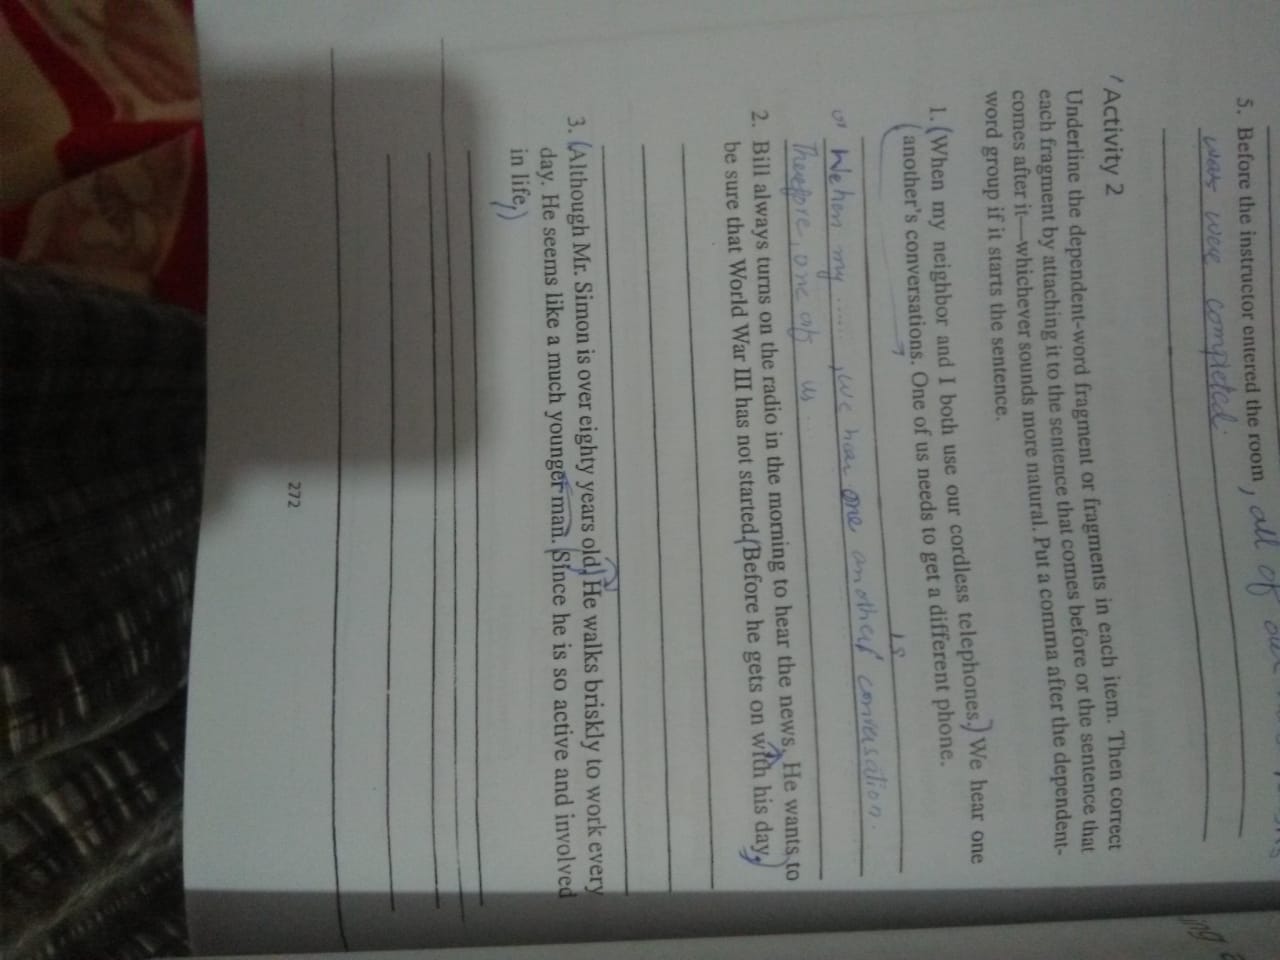 5. Before the instructor entered the room, all of our
was were completed.
Activity 2
Underline the dependent-word fragment or fragments in each item. Then correct
each fragment by attaching it to the sentence that comes before or the sentence that
comes after it—whichever sounds more natural. Put a comma after the dependent-
word group if it starts the sentence.
1. (When my neighbor and I both use our cordless telephones.) We hear one
another's conversations. One of us needs to get a different phone.
is
or When my ......, we hear one another's conversation.
Therefore, one of us ...
2. Bill always turns on the radio in the morning to hear the news. He wants to
be sure that World War III has not started. (Before he gets on with his day,)
3. (Although Mr. Simon is over eighty years old,) He walks briskly to work every
day. He seems like a much younger man. (Since he is so active and involved
in life,)
272
ing